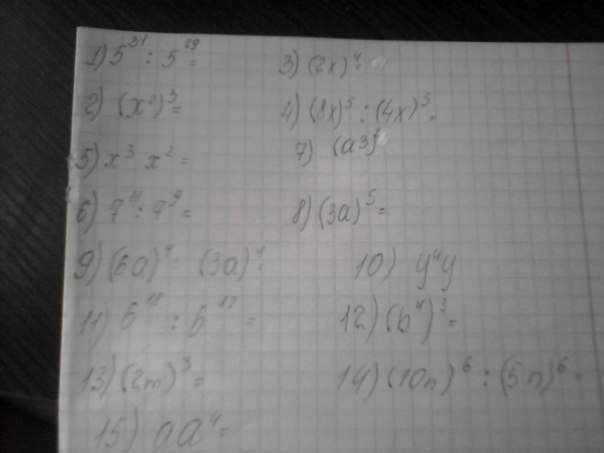 1) 5³¹ : 5²⁹ =
3) (2x)⁴ =
2) (x⁹)³ =
4) (8x)⁵ : (4x)⁵ =
5) x³ x² =
7) (a3)
6) 7¹¹ : 7⁹ =
8) (3a)⁵ =
9) (6a)⁴ (3a)⁴ =
10) y⁴y
11) b¹⁸ : b¹⁷ =
12) (b⁴)² =
13) (2m)³ =
14) (10n)⁶ : (5n)⁶ =
15) aa⁴ =